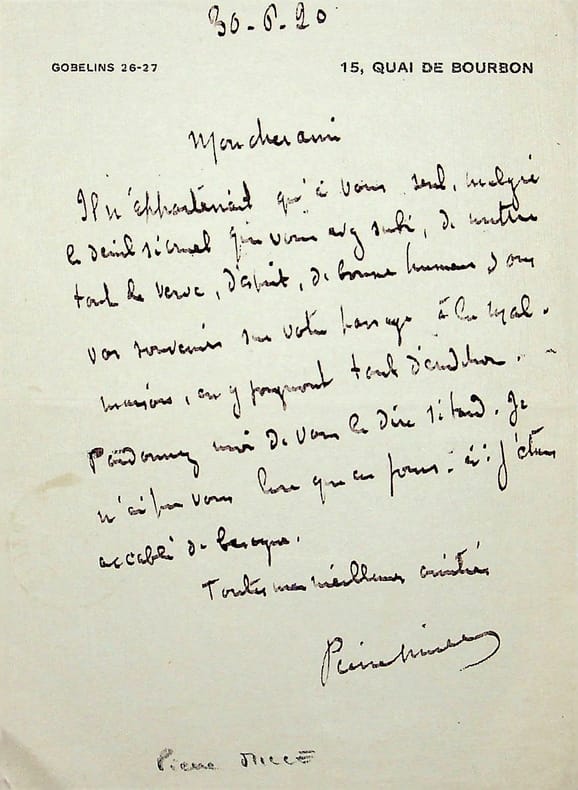 30-6-20
GOBELINS 26-27
15, QUAI DE BOURBON
Mon cher ami
Il n'appartenait qu'à vous seul, malgré
le deuil si cruel que vous avez subi, de mettre
tant de verve, d'esprit, de bonne humeur dans
vos souvenirs sur votre passage à la
maison, en y joignant tant d'
Pardonnez moi de vous le dire si tard. Je
n'ai pu vous lire que ces jours-ci : j'étais
accablé de besogne.
Toutes mes meilleures amitiés
Pierre Mille
Pierre MILLE